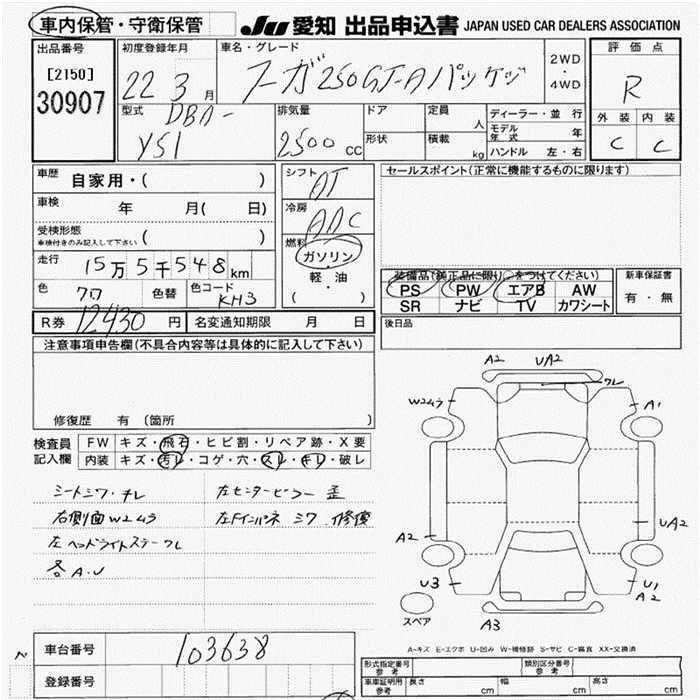 車内保管・守衛保管
JU 愛知 出品申込書 JAPAN USED CAR DEALERS ASSOCIATION
出品番号
[2150]
30907
初度登録年月
22 3月
車名・グレード
フーガ250GT-Aパッケージ
2WD
・
4WD
評価点
R
外装 内装
C C
型式
DBA-
Y51
排気量
2500 CC
ドア
形状
定員
人
積載
kg
ディーラー・並行
モデル年式 年
ハンドル 左・右
車歴
自家用・( )
車検
年 月( 日)
受検形態
車検付きのみ記入して下さい
( )
走行
15万5千548km
色
クロ
色替
色コード
KH3
シフト
AT
冷房
AAC
燃料
ガソリン
軽・油
( )
セールスポイント(正常に機能するものに限ります)
装備品(純正品に限り○をつけてください)
PS PW エアB AW
SR ナビ TV カワシート
新車保証書
有・無
R券 12430円
名変通知期限 月 日
後日品
注意事項申告欄(不具合内容等は具体的に記入して下さい)
修復歴 有 (箇所 )
検査員
記入欄
FW キズ・飛石・ヒビ割・リペア跡・X要
内装 キズ・汚レ・コゲ・穴・スレ・キレ・破レ
シートシワ・チレ
右側面W2ムラ
左ヘッドライトステーワレ
各A.U
左センターピラー歪
左Fインパネ シワ 修復
A2 UA2
ワレ
W2ムラ
A1
A2
UA2
U3
U1
A2
スペア
A3
A-キズ E-エクボ U-凹み W-補修跡 S-サビ C-腐食 XX-交換済
車台番号
103638
登録番号
形式指定番号
参考
類別区分番号
参考
車庫証明用
参考
長さ cm
幅 cm
高さ cm